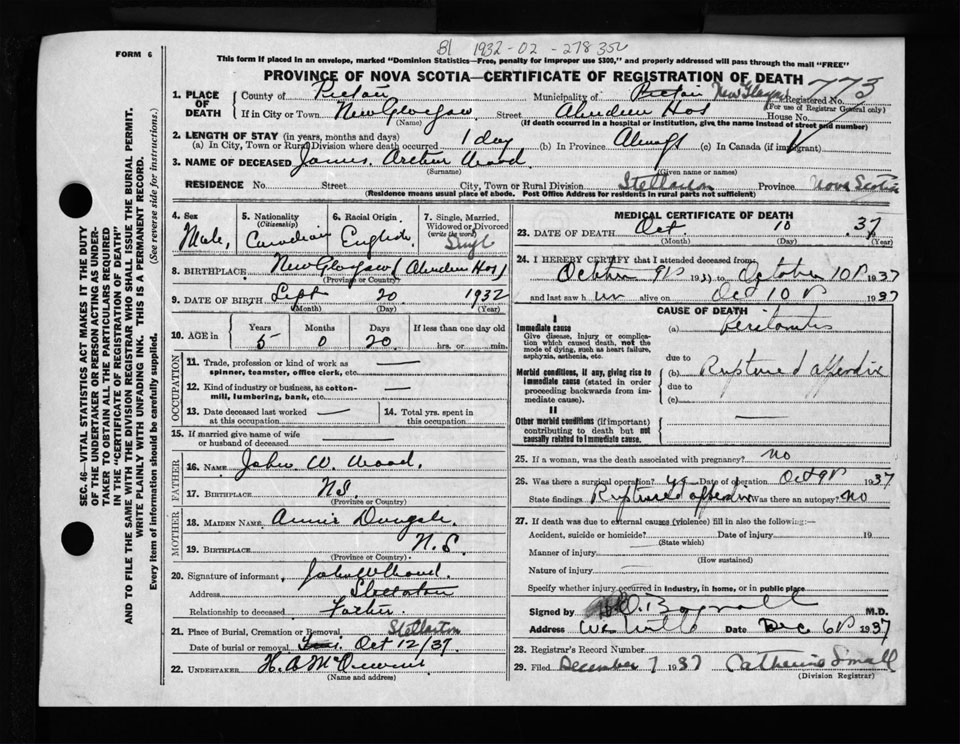 FORM 6
B1 1932-02-278350
This form if placed in an envelope, marked "Dominion Statistics—Free, penalty for improper use $300," and properly addressed will pass through the mail "FREE"
PROVINCE OF NOVA SCOTIA—CERTIFICATE OF REGISTRATION OF DEATH
773
1. PLACE OF DEATH
County of Pictou Municipality of Pictou New Glasgow Registered No.
(For use of Registrar General only)
If in City or Town New Glasgow Street Aberdeen Hos House No.
(Name) (If death occurred in a hospital or institution, give the name instead of street and number)
2. LENGTH OF STAY (in years, months and days)
(a) In City, Town or Rural Division where death occurred 1 day (b) In Province Always (c) In Canada (if immigrant)
3. NAME OF DECEASED James Arthur Wood
(Surname) (Given name or names)
RESIDENCE No. Street City, Town or Rural Division Stellarton Province Nova Scotia
(Residence means usual place of abode. Post Office Address for residents in rural parts not sufficient)
4. Sex Male,
5. Nationality (Citizenship) Canadian
6. Racial Origin English
7. Single, Married, Widowed or Divorced (write the word) Single
8. BIRTHPLACE New Glasgow (Aberdeen Hos)
(Province or Country)
9. DATE OF BIRTH Sept 20 1932
(Month) (Day) (Year)
10. AGE in Years Months Days If less than one day old
5 0 20 hrs. or min.
OCCUPATION
11. Trade, profession or kind of work as spinner, teamster, office clerk, etc. —
12. Kind of industry or business, as cotton-mill, lumbering, bank, etc. —
13. Date deceased last worked at this occupation —
14. Total yrs. spent in this occupation
15. If married give name of wife or husband of deceased —
FATHER
16. NAME John W. Wood,
17. BIRTHPLACE N.S.
(Province or Country)
MOTHER
18. MAIDEN NAME Annie
19. BIRTHPLACE N.S.
(Province or Country)
20. Signature of informant, John W Wood.
Address Stellarton
Relationship to deceased Father.
21. Place of Burial, Cremation or Removal Stellarton
Date of burial or removal Oct 12/37.
22. UNDERTAKER H. A.
(Name and address)
MEDICAL CERTIFICATE OF DEATH
23. DATE OF DEATH Oct 10 37
(Month) (Day) (Year)
24. I HEREBY CERTIFY that I attended deceased from
October 9th 1937 to October 10th 1937
and last saw him alive on Oct 10th 1937
CAUSE OF DEATH
I
Immediate cause
Give disease, injury or complication which caused death, not the mode of dying, such as heart failure, asphyxia, asthenia, etc.
(a) Peritonitis
due to
Morbid conditions, if any, giving rise to immediate cause (stated in order proceeding backwards from immediate cause).
(b) Ruptured appendix
due to
(c)
II
Other morbid conditions (if important) contributing to death but not causally related to immediate cause. —
25. If a woman, was the death associated with pregnancy? no
26. Was there a surgical operation? yes Date of operation Oct 9th 1937
State findings Ruptured appendix Was there an autopsy? no
27. If death was due to external causes (violence) fill in also the following:—
Accident, suicide or homicide? Date of injury 19
(State which)
Manner of injury
(How sustained)
Nature of injury
Specify whether injury occurred in industry, in home, or in public place
Signed by M.D.
Address Date Dec 6th 1937
28. Registrar's Record Number
29. Filed December 7 1937 Catherine Small
(Division Registrar)
SEC. 46—VITAL STATISTICS ACT MAKES IT THE DUTY
OF THE UNDERTAKER OR PERSON ACTING AS UNDER-
TAKER TO OBTAIN ALL THE PARTICULARS REQUIRED
IN THE "CERTIFICATE OF REGISTRATION OF DEATH"
AND TO FILE THE SAME WITH THE DIVISION REGISTRAR WHO SHALL ISSUE THE BURIAL PERMIT.
WRITE PLAINLY WITH UNFADING INK. THIS IS A PERMANENT RECORD.
Every item of information should be carefully supplied. (See reverse side for instructions.)